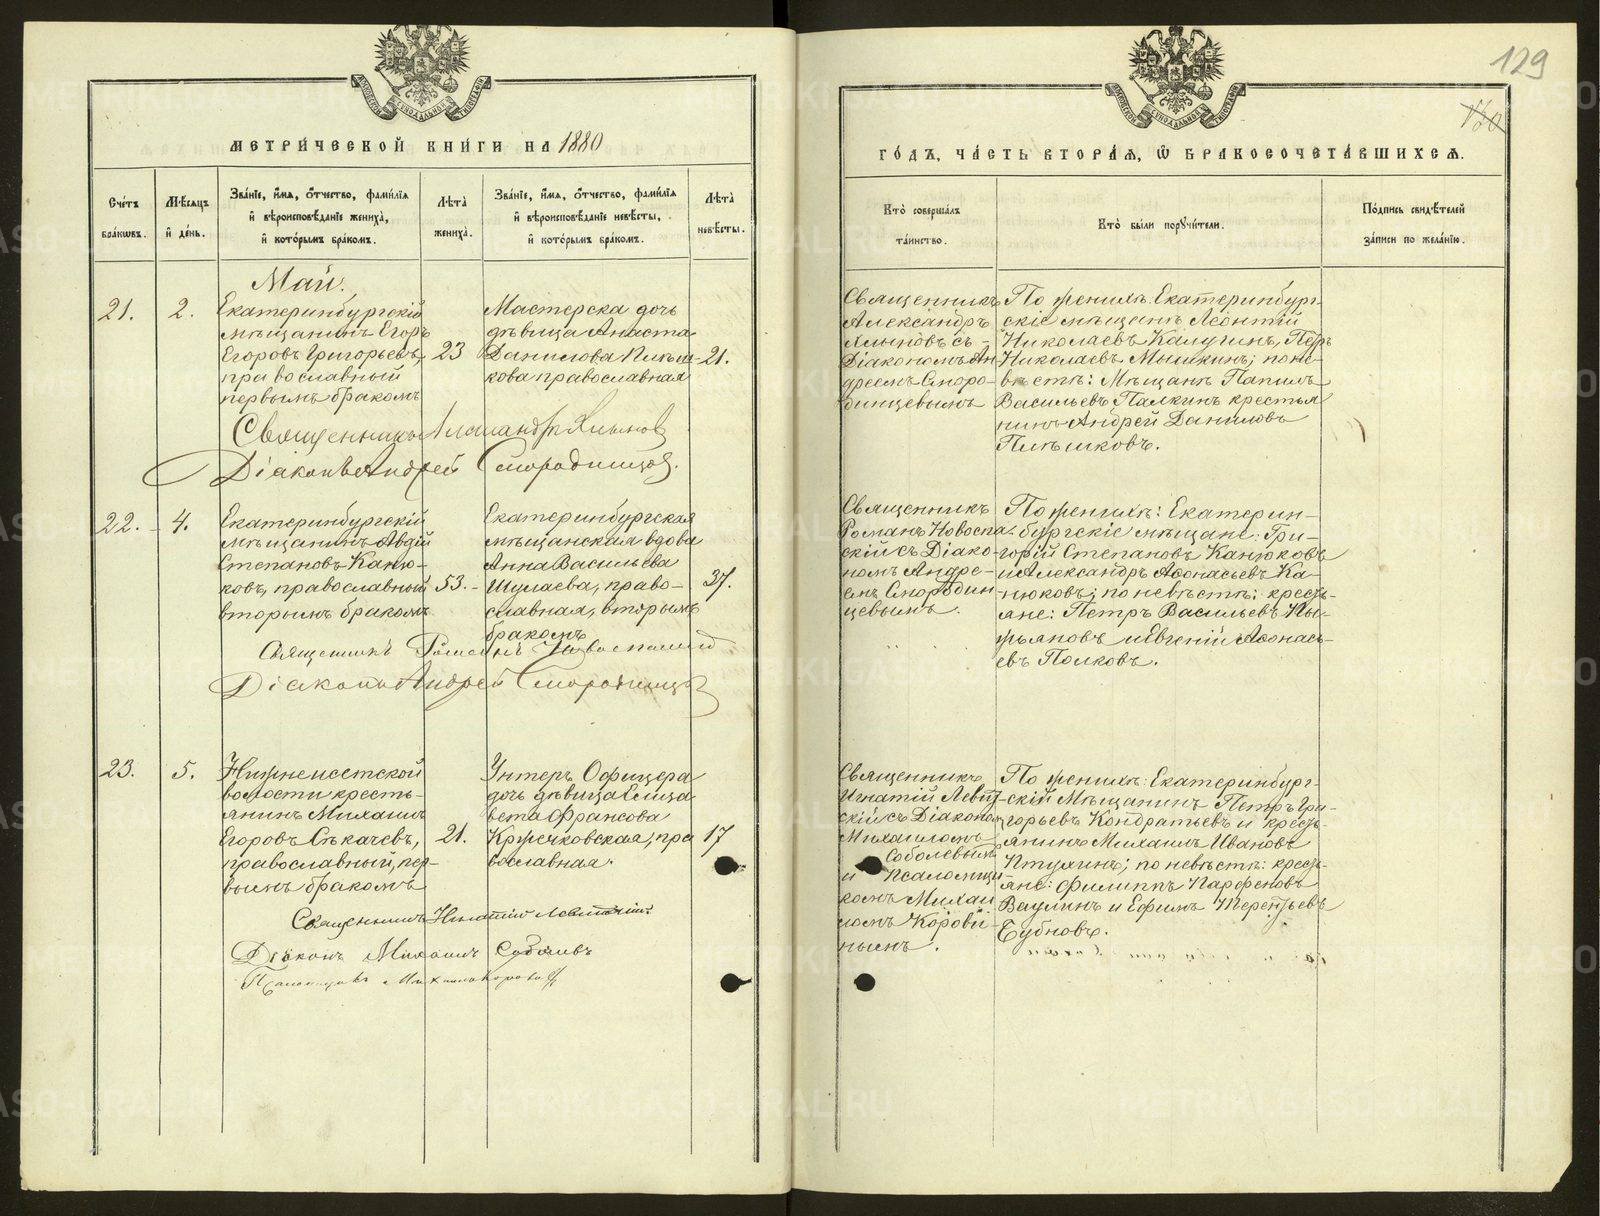 129
130
МЕТРИ́ЧЕСКОЙ КНИ́ГИ НА 1880
ГО́ДЪ, ЧА́СТЬ ВТОРА́Я, Ѽ БРАКОСОЧЕТА́ВШИХСЯ.
Сче́тъ бра́ковъ.
Мѣ́сяцъ и҆ де́нь.
Зва́нїе, и҆́мя, ѻ҆́тчество, фами́лїя и҆ вѣроисповѣ́данїе жениха̀, и҆ кото́рымъ бра́комъ.
Лѣта̀ жениха̀.
Зва́нїе, и҆́мя, ѻ҆́тчество, фами́лїя и҆ вѣроисповѣ́данїе невѣ́сты, и҆ кото́рымъ бра́комъ.
Лѣта̀ невѣ́сты.
Кто̀ соверша́лъ та́инство.
Кто̀ бы́ли порꙋчи́тели.
По́дпись свидѣ́телей за́писи по жела́нїю.
Май.
21.
2.
Екатеринбургскій
мѣщанинъ Егоръ
Егоровъ Григорьевъ,
православный
первымъ бракомъ
23
Мастерска дочь
дѣвица Анаста-
Данилова Пѣтш-
кова православная
21.
Священникъ
Александръ
Хлыновъ съ
Діакономъ Ан-
дреемъ Сморо-
динцевымъ
По женихѣ: Екатеринбург-
скіе мѣщане Леонтій
Николаевъ Калугинъ, Петръ
Николаевъ Мышкинъ; по не-
вѣстѣ: Мѣщанъ Папилъ
Васильевъ Палкинъ крестья
нинъ Андрей Даниловъ
Пѣтшковъ.
Священникъ Александръ Хлыновъ
Діаконъ Андрей Смородинцовъ.
22.
4.
Екатеринбургскій
мѣщанинъ Авдій
Степановъ Каню-
ковъ, православный
вторымъ бракомъ
53.
Екатеринбургская
мѣщанская вдова
Анна Васильева
Шулаева, право-
славная, вторымъ
бракомъ
37.
Священникъ
Романъ Новоспа-
скій съ Діако-
номъ Андре-
емъ Смородин-
цевымъ.
По женихѣ: Екатерин-
бургскіе мѣщане: Гри-
горій Степановъ Канюковъ
и Александръ Аѳонасьевъ Ка-
нюковъ; по невѣстѣ: кресть-
яне: Петръ Васильевъ Кы-
рьяновъ и Евгеній Аѳонась-
евъ Полковъ.
Священникъ Романъ Новоспасскій
Діаконъ Андрей Смородинцовъ
23.
5.
Нижнеисетской
волости кресть-
янинъ Михаилъ
Егоровъ Сѣкачевъ,
православный, пер-
вымъ бракомъ
21.
Унтеръ Офицера
дочь дѣвица Елиза
вета Франсова
Кржечковская, пра
вославная.
17
Священникъ
Игнатій Левит-
скій съ Діакономъ
Михаиломъ
Соболевымъ
и Псаломщи-
комъ Михаи
ломъ Корови-
нымъ.
По женихѣ: Екатеринбург-
скій Мѣщанинъ Петръ Гри-
горьевъ Кондратьевъ и кресть-
янинъ Михаилъ Ивановъ
Птухинъ; по невѣстѣ: кресть-
яне: Филиппъ Парфеновъ
Ваулинъ и Ефимъ Терентьевъ
Бубновъ.
Священникъ Игнатій Левитскій.
Діаконъ Михаилъ Соболевъ
Псаломщикъ Михаилъ Коровинъ